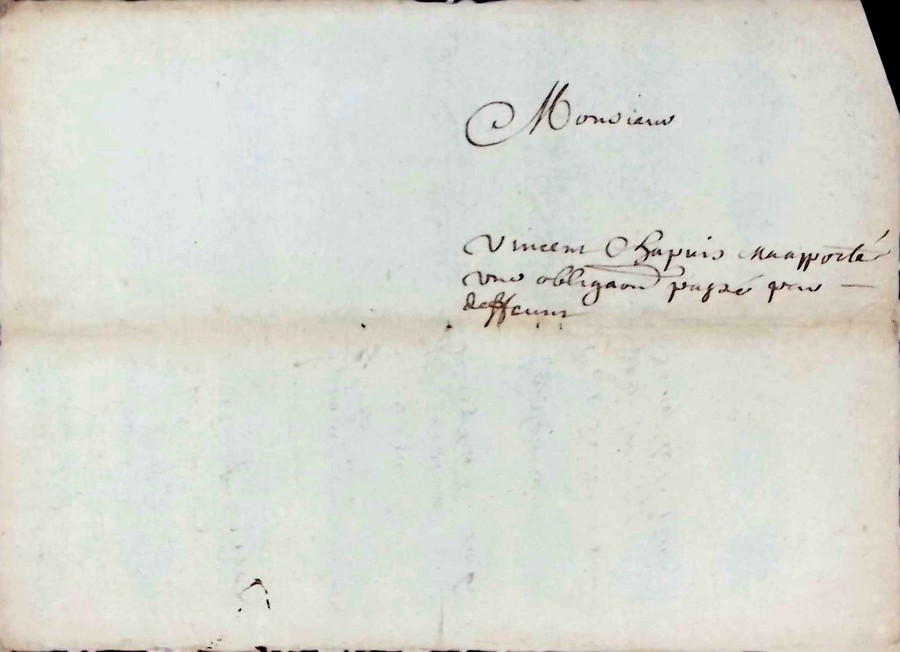 Monsieur
Vincent Chapuis ma apporté
une obligaon passé par
deffunt